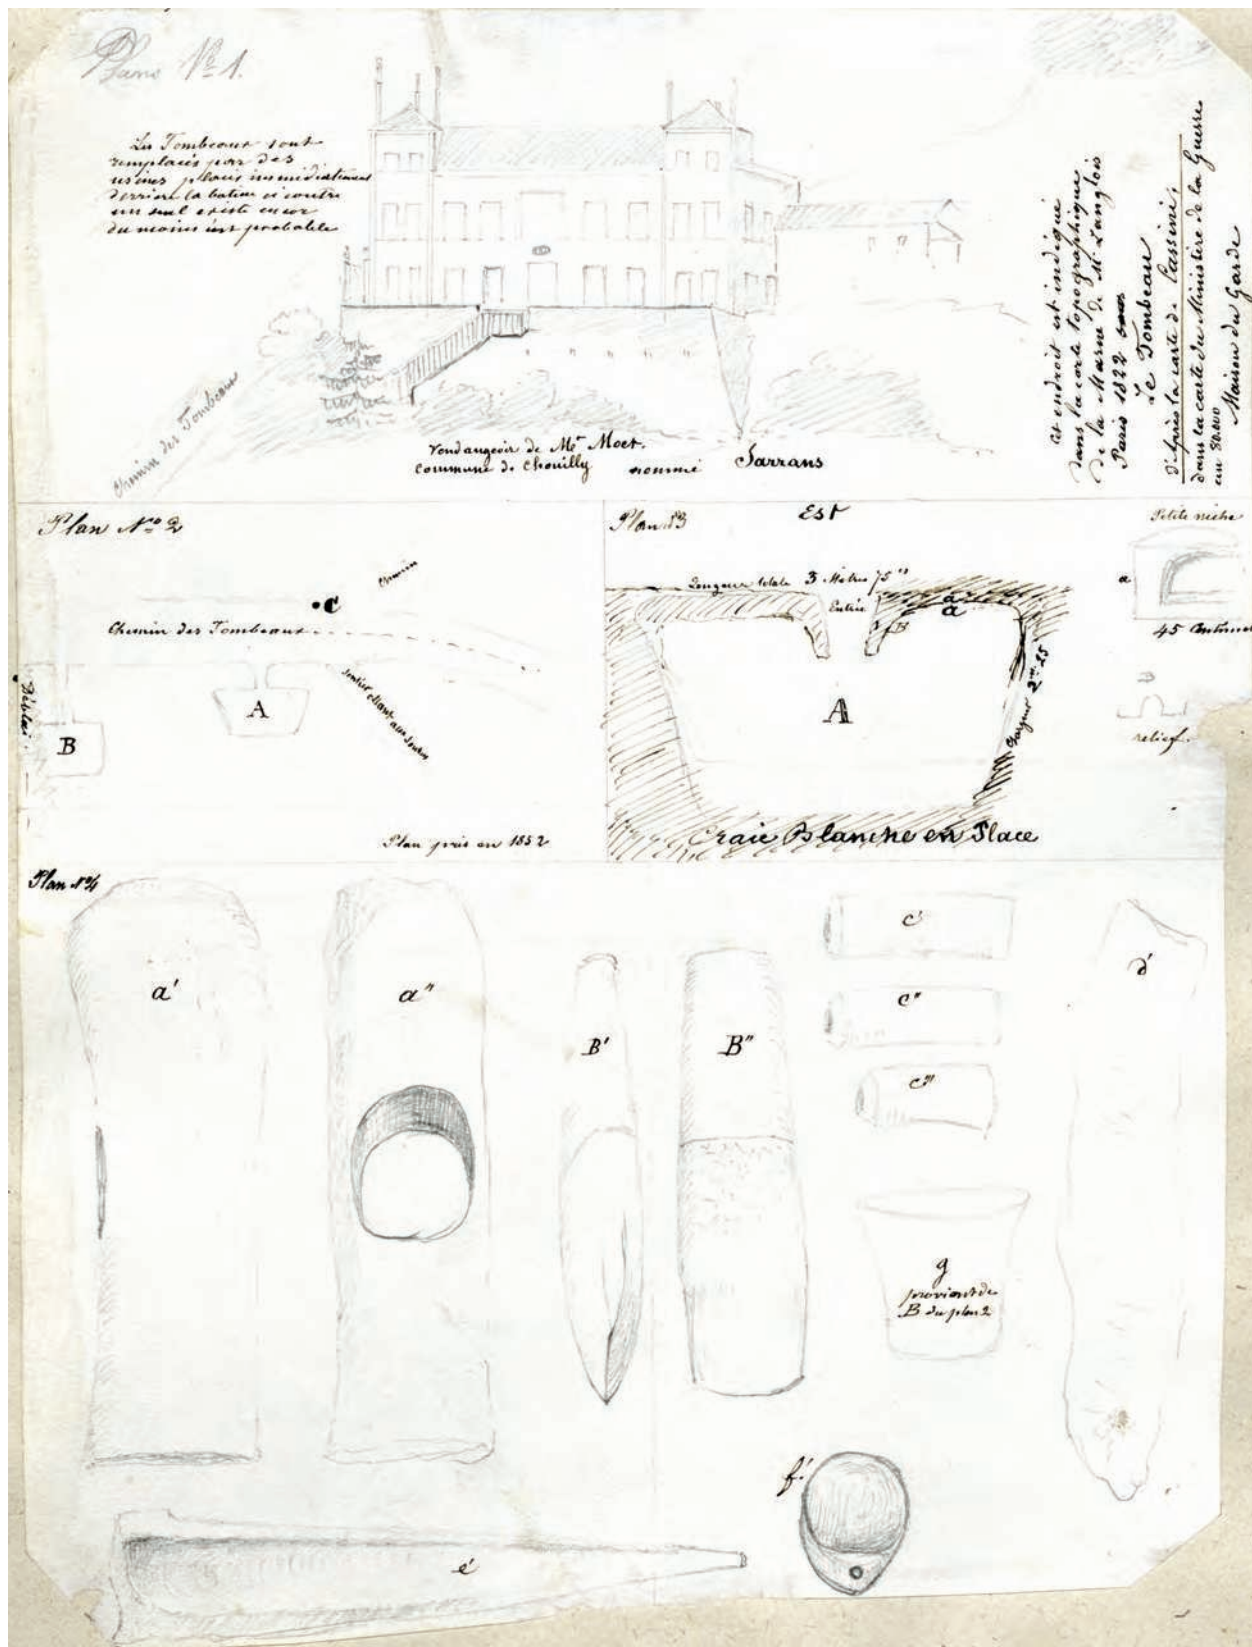 Plans No 1.
Les Tombeaux sont
remplacés par des
usines placés immédiatement
derrière la batise ci contre
un seul existe encor
du moins c'est probable
Chemin des Tombeaux
Vendangeoir de Mr Moet.
Commune de Chouilly nommé Sarrans
cet endroit est indiqué
dans la carte topographique
de la Marne de Mr Langlois
Paris 1822
Le Tombeau
d'après la carte de Cassini;
dans la carte du Ministère de la Guerre
au 80.000
Maison du Garde
Plan No 2
Chemin
•C
Chemin des Tombeaux
Déblai
A
B
Sentier allant aux
Plan pris en 1852
Plan n3
Est
Longueur totale 3 Mètres 75 cs
Entrée
a
a
B
A
Largeur 2m 25
Craie Blanche en Place
Petite niche
a
45 Centimes
B
relief
Plan No 4
a'
a"
B'
B"
c'
c"
c'"
d'
g
provient de
B du plan 2
f'
e'